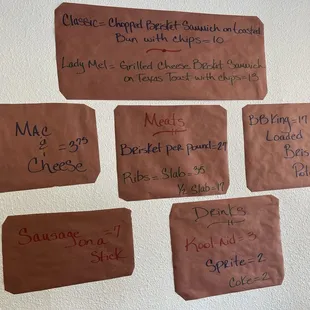 Classic = Chopped Brisket Sammich on Toasted
Bun with chips = 10
Lady Mel = Grilled Cheese Brisket Sammich
on Texas Toast with chips = 13
Mac
&
Cheese
= 3.75
Meats
Brisket per pound = 27
Ribs = Slab = 35
½ Slab = 17
BBKing = 17
Loaded
Bris
Sausage = 7
on a
Stick
Drinks
Kool Aid =
Sprite = 2
Coke = 2